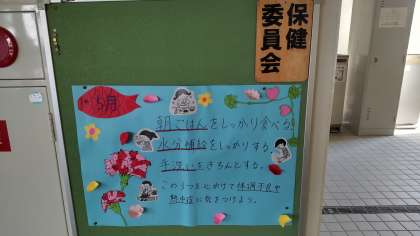 保健
委員会
5月
朝ごはんをしっかり食べる。
水分補給をしっかりする
手洗いをきちんとする。
この3つを心がけて体調不良や
熱中症に気をつけよう。